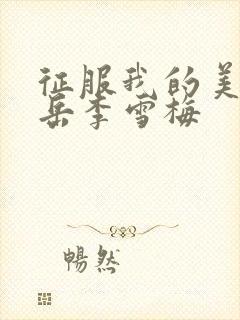 征服我的美
岳李雪梅
畅然